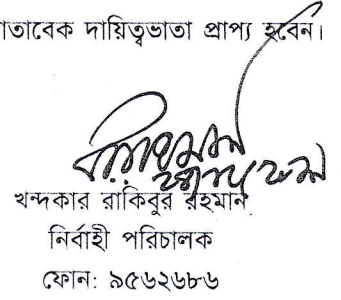 দায়িত্বভাতা প্রাপ্য হবেন।
খন্দকার রাকিবুর রহমান
নির্বাহী পরিচালক
ফোন: ৯৫৬২৬৮৬